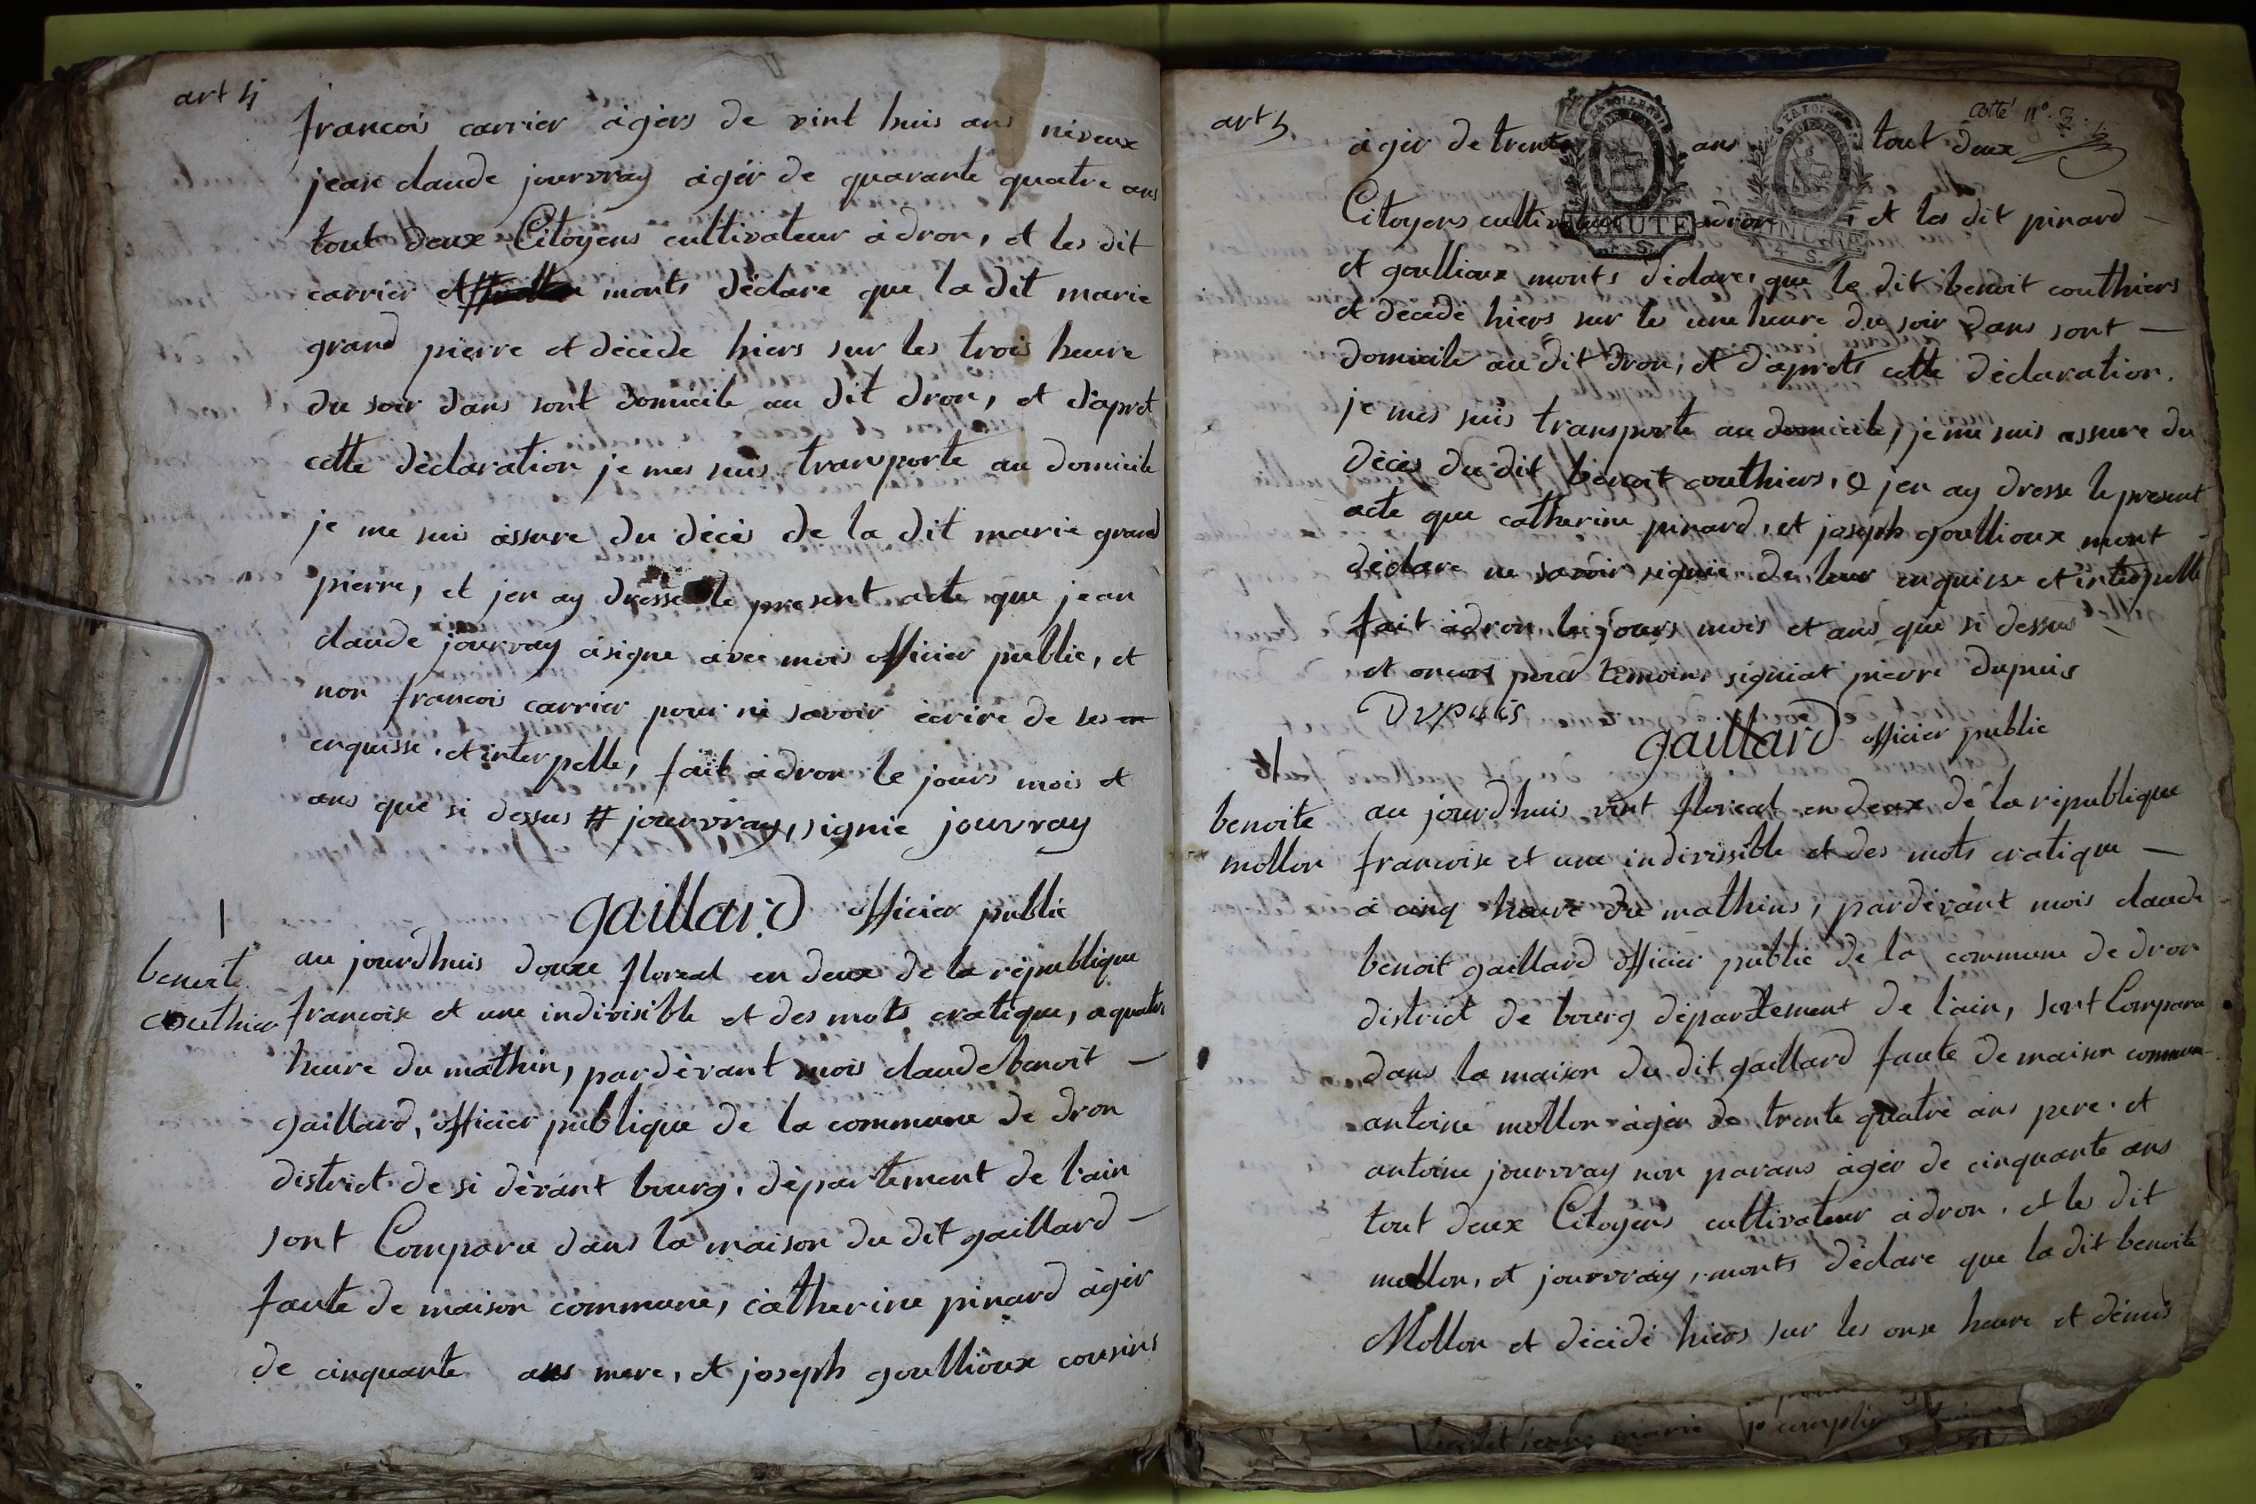 art 4
francois carrier àgérs de vint huis ans néveux
jean claude jourvray àgér de quarante quatre ans
tout deux Citoyens cultivateur àdron, et les dit
carrier et monts déclare que la dit marie
grand pierre et décède hiers sur les trois heure
du soir dans sont domicile au dit dron, et dàprèt
cette déclaration je mes suis transporte au domicile
je me suis àssure du décès de la dit marie grand
pierre, et jen ay dresse le present acte que jean
claude jourvray àsigne àvec mois officier public, et
non francois carrier pour ne savoir écrire de les
enquisse. et interpelle, fait àdron le jours mois et
ans que si dessus # jourvray, signie jouvray
gaillard officier public
benoite
couthier
au jourdhuis douxe floreal en deux de la république
francoise et une indivisible et des mots cratique, a quatre
heure du mathin, pardèvant mois claude benoit —
gaillard, officier publique de la commune de dron
district de si dèvant bourg. département de l'ain
sont Comparu dans la maison du dit gaillard —
faute de maison commune, catherine pinard àgér
de cinquante ans mere, et joseph goullioux cousins
art 5
cotté n°. 3.
àgér de trente ans tout deux
Citoyens àdron, et les dit pinard —
et goullioux monts déclare, que le dit benoit couthiers
et décède hiers sur les une heure du soir dans sont —
domicile au dit dron, et dàprets cette déclaration.
je mes suis transporte au domicile, je me suis assure du
décès du dit benoit couthiers, & jen ay dresse le present
acte que catherine pinard, et joseph goullioux mont
déclare ne savoir signie de leur enquisse et interpelle
fait àdron le jours mois et ans que si dessus
et oncors pour témoins signiat pierre dupuis
Dupuis
gaillard officier public
benoite
mollon
au jourdhuis vint floreal en deux de la république
francoise et une indivissible et des mots cratique —
à cinq heure du mathins, pardèvant mois claude
benoit gaillard officier public de la commune de dron
district de bourg département de l'ain, sont Comparu
dans la maison du dit gaillard faute de maison commune
antoine mollon àgér de trente quatre ans pere. et
antoine jourvray non parans àgér de cinquante ans
tout deux Citoyens cultivateur àdron. et les dit
mollon, et jourvray, monts déclare que la dit benoite
Mollon et décidé hiers sur les onse heure et démis